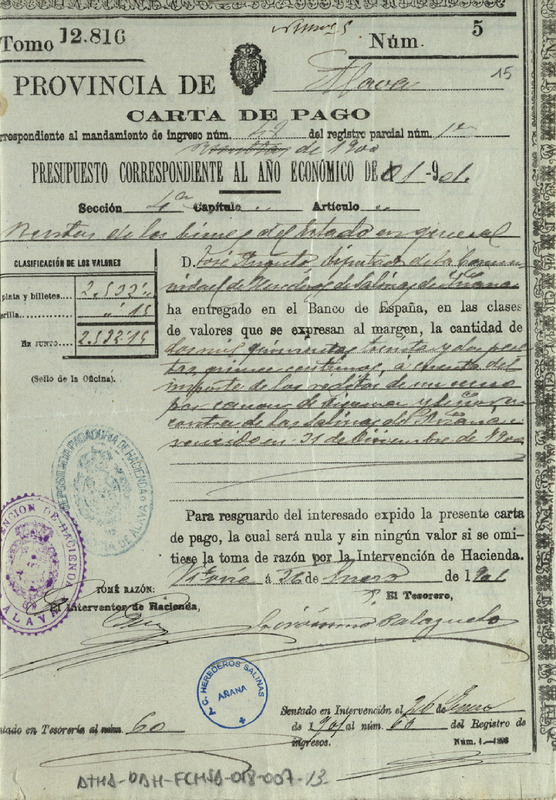 Tomo 12.816
Núm. 5
15
PROVINCIA DE Alava
CARTA DE PAGO
rrespondiente al mandamiento de ingreso núm. 48 del registro parcial núm. 1º
de 1900
PRESUPUESTO CORRESPONDIENTE AL AÑO ECONÓMICO DE 1901
Sección 4ª Capítulo „ Artículo „
Rentas de los bienes del Estado en general
CLASIFICACIÓN DE LOS VALORES
plata y billetes.... 2.532 „
erilla... „ 15
EN JUNTO..... 2.532'15
(Sello de la Oficina).
D. José Angulo Diputado de la Comu-
nidad de Herederos de Salinas de Añana
ha entregado en el Banco de España, en las clases
de valores que se expresan al margen, la cantidad de
dos mil quinientas treinta y dos pese-
tas quince centimos, á cuenta del
importe de los reditos de un censo
por canon de
contra de las Salinas de Añana
vencido en 31 de Diciembre de 1900
DEPOSITARIA PAGADURIA DE HACIENDA
DE ALAVA
INTERVENCION DE HACIENDA
ALAVA
Para resguardo del interesado expido la presente carta
de pago, la cual será nula y sin ningún valor si se omi-
tiese la toma de razón por la Intervención de Hacienda.
Vitoria á 26 de Enero de 1901
TOMÉ RAZÓN:
El Interventor de Hacienda,
El Tesorero,
Gerónimo Palazuelo
C. HEREDEROS SALINAS
AÑANA
Sentado en Intervención el 26 de Enero
ntado en Tesorería al núm. 60
de 1901 al núm. 60 del Registro de
ingresos.
Núm. 1.—1898
ATHA-DAH-FCHSA-018-007-13